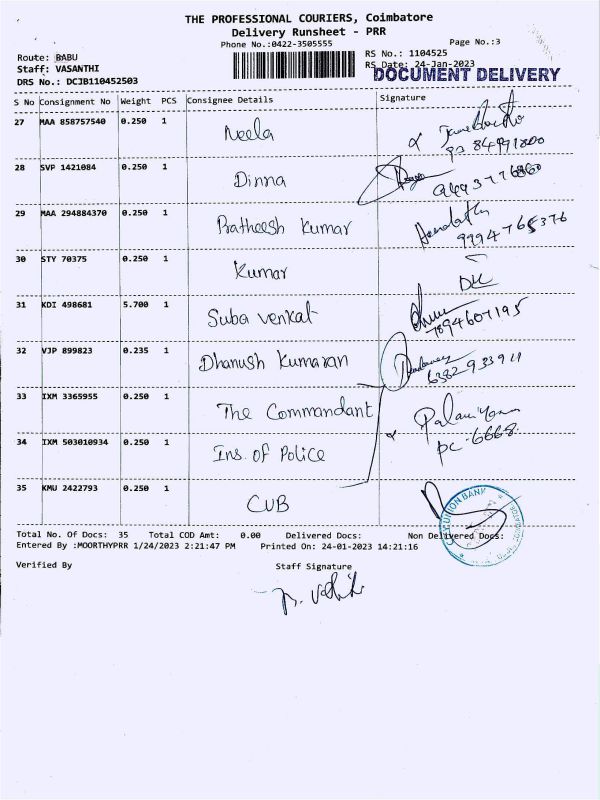 THE PROFESSIONAL COURIERS, Coimbatore
Delivery Runsheet - PRR
Phone No.:0422-3505555
Page No.:3
Route: BABU
RS No.: 1104525
Staff: VASANTHI
RS Date: 24-Jan-2023
DRS No.: DCJB110452503
DOCUMENT DELIVERY
S No Consignment No Weight PCS Consignee Details Signature
27 MAA 858757540 0.250 1 Neela
28 SVP 1421084 0.250 1 Dinna
29 MAA 294884370 0.250 1 Pratheesh Kumar
9994765376
30 STY 70375 0.250 1 Kumar
DK
31 KDI 498681 5.700 1 Suba Venkat
7894607195
32 VJP 899823 0.235 1 Dhanush Kumaran
6382933911
33 IXM 3365955 0.250 1 The Commandant
34 IXM 503010934 0.250 1 Ins. of Police
PC-6668
35 KMU 2422793 0.250 1 CUB
CITY UNION BANK
Total No. Of Docs: 35 Total COD Amt: 0.00 Delivered Docs: Non Delivered Docs:
Entered By :MOORTHYPRR 1/24/2023 2:21:47 PM Printed On: 24-01-2023 14:21:16
Verified By Staff Signature